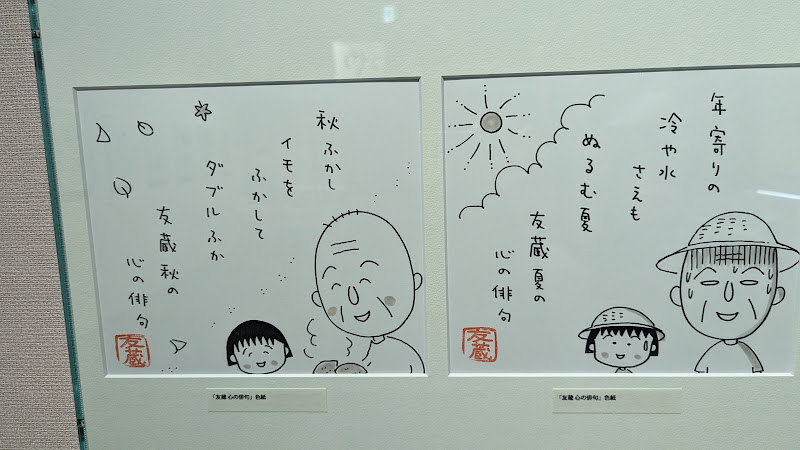 秋ふかし
イモを
ふかして
ダブルふか
友蔵秋の
心の俳句
友蔵
「友蔵 心の俳句」色紙
年寄りの
冷や水
さえも
ぬるむ夏
友蔵夏の
心の俳句
友蔵
「友蔵 心の俳句」色紙